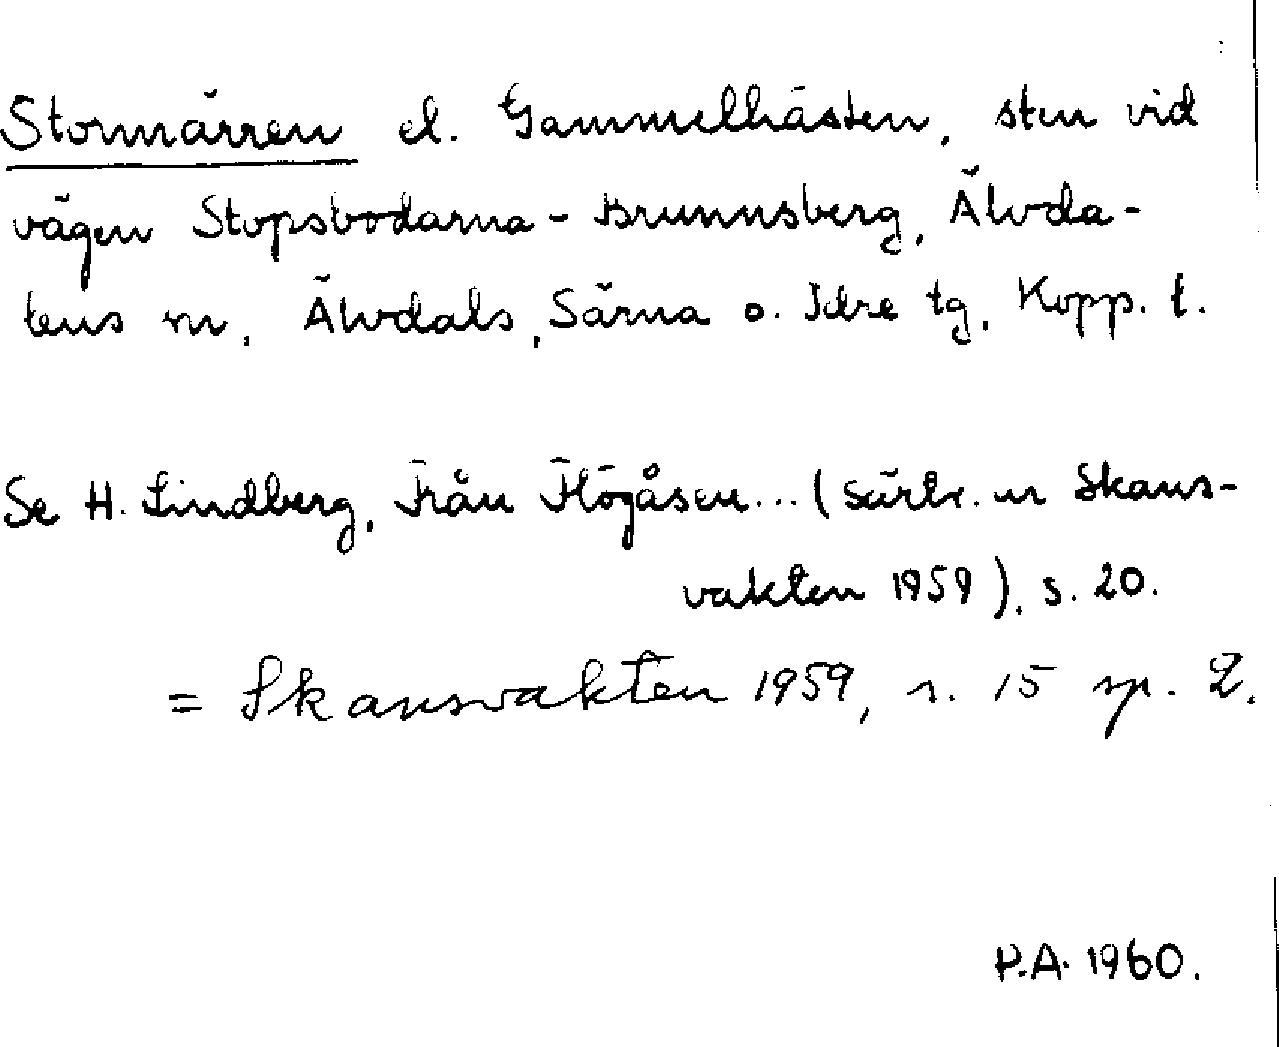 Stormärren el. Gammelhästen, sten vid
vägen Stopsbodarna - Brunnsberg, Älvda-
lens sn, Älvdals, Särna o. Idre tg, Kopp. l.
Se H. Lindberg, Från Högåsen... (särtr. ur Skans-
vakten 1959), s. 20.
= Skansvakten 1959, s. 15 sp. 2.
P.A. 1960.